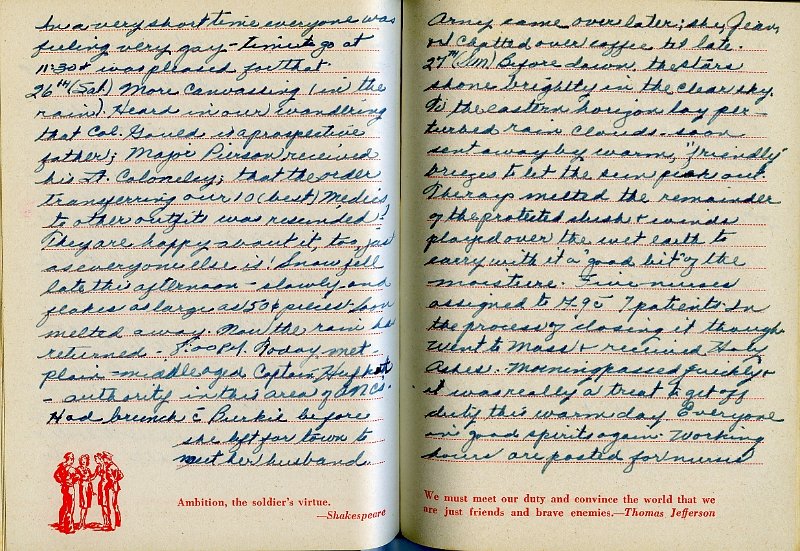 In a very short time everyone was
feeling very gay - time to go at
11:30 & was pleased for that.
26th (Sat) More canvassing (in the
rain). Heard in our wandering
that Col. Gould is a prospective
father; Major Pierson received
his Lt. Colonelcy; that the order
transferring our 10 (best) Medics
to other outfits was rescinded!
They are happy about it too, just
as everyone else is! Snow fell
late this afternoon - slowly and
flakes as large as 50¢ pieces. Soon
melted away. Now the rain has
returned. 8:00 P.M. Today met
plain - middleaged Captain
- authority in this area of ANCs.
Had brunch c̄ Burkie before
she left for town to
meet her husband.
Ambition, the soldier's virtue.
—Shakespeare
Army came over later; she, Jean,
& I chatted over coffee til late.
27th (Sun) Before dawn, the stars
shone brightly in the clear sky.
To the eastern horizon lay per-
turbed rain clouds - soon
sent away by warm, "friendly"
breezes to let the sun peak out.
The rays melted the remainder
of the protected slush & winds
played over the wet earth to
carry with it a "good bit" of the
moisture. Five nurses
assigned to 7 patients. In
the process of closing it though.
Went to Mass & received Holy
Ashes. Morning passed quickly &
it was really a treat to get off
duty this warm day. Everyone
in good spirits again. Working
hours are posted for nurses
We must meet our duty and convince the world that we
are just friends and brave enemies.—Thomas Jefferson